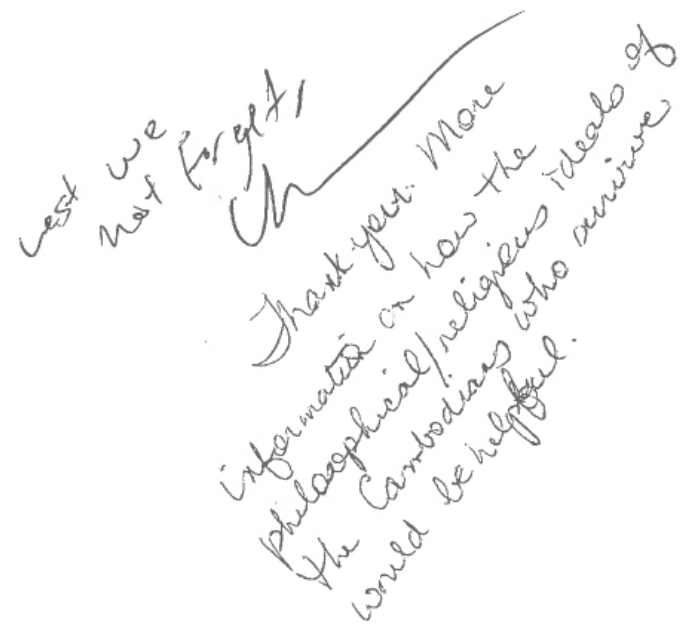 Lest we
not forget,
Thank you. More
information on how the
philosophical/religious ideals of
the Cambodians who survive
would be helpful.